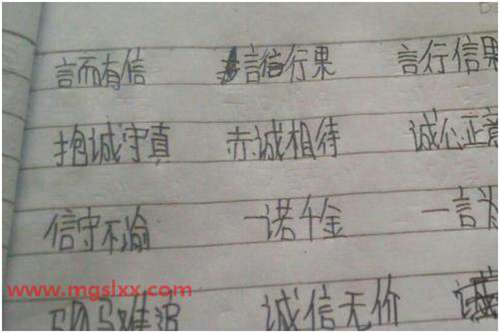 言而有信 言信行果 言行信果
抱诚守真 赤诚相待 诚心正意
信守不渝 一诺千金 一言
www.mgslxx.com
驷马难追 诚信无价 诚